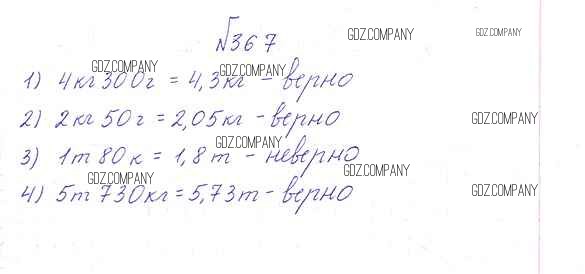 №367
1) 4кг 300г = 4,3кг - верно
2) 2кг 50г = 2,05кг - верно
3) 1т 80к = 1,8т - неверно
4) 5т 730кг = 5,73т - верно
GDZ.COMPANY
GDZ.COMPANY
GDZ.COMPANY
GDZ.COMPANY
GDZ.COMPANY
GDZ.COMPANY
GDZ.COMPANY
GDZ.COMPANY
GDZ.COMPANY